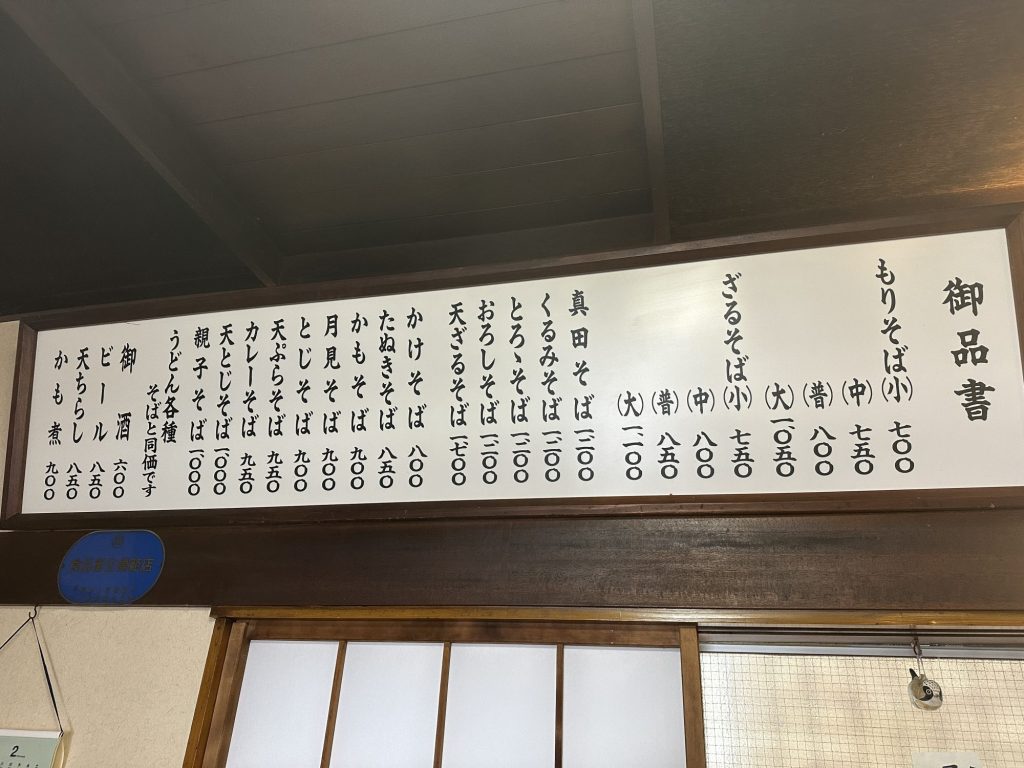 御品書
もりそば(小) 七〇〇
(中) 七五〇
(普) 八〇〇
(大) 一〇五〇
ざるそば(小) 七五〇
(中) 八〇〇
(普) 八五〇
(大) 一一〇〇
真田そば 一二〇〇
くるみそば 一二〇〇
とろゝそば 一二〇〇
おろしそば 一二〇〇
天ざるそば 一七〇〇
かけそば 八〇〇
たぬきそば 八五〇
かもそば 九〇〇
月見そば 九〇〇
とじそば 九〇〇
天ぷらそば 九五〇
カレーそば 九五〇
天とじそば 一〇〇〇
親子そば 一〇〇〇
うどん各種
そばと同価です
御酒 六〇〇
ビール 八五〇
天ちらし 八五〇
かも煮 九〇〇
2